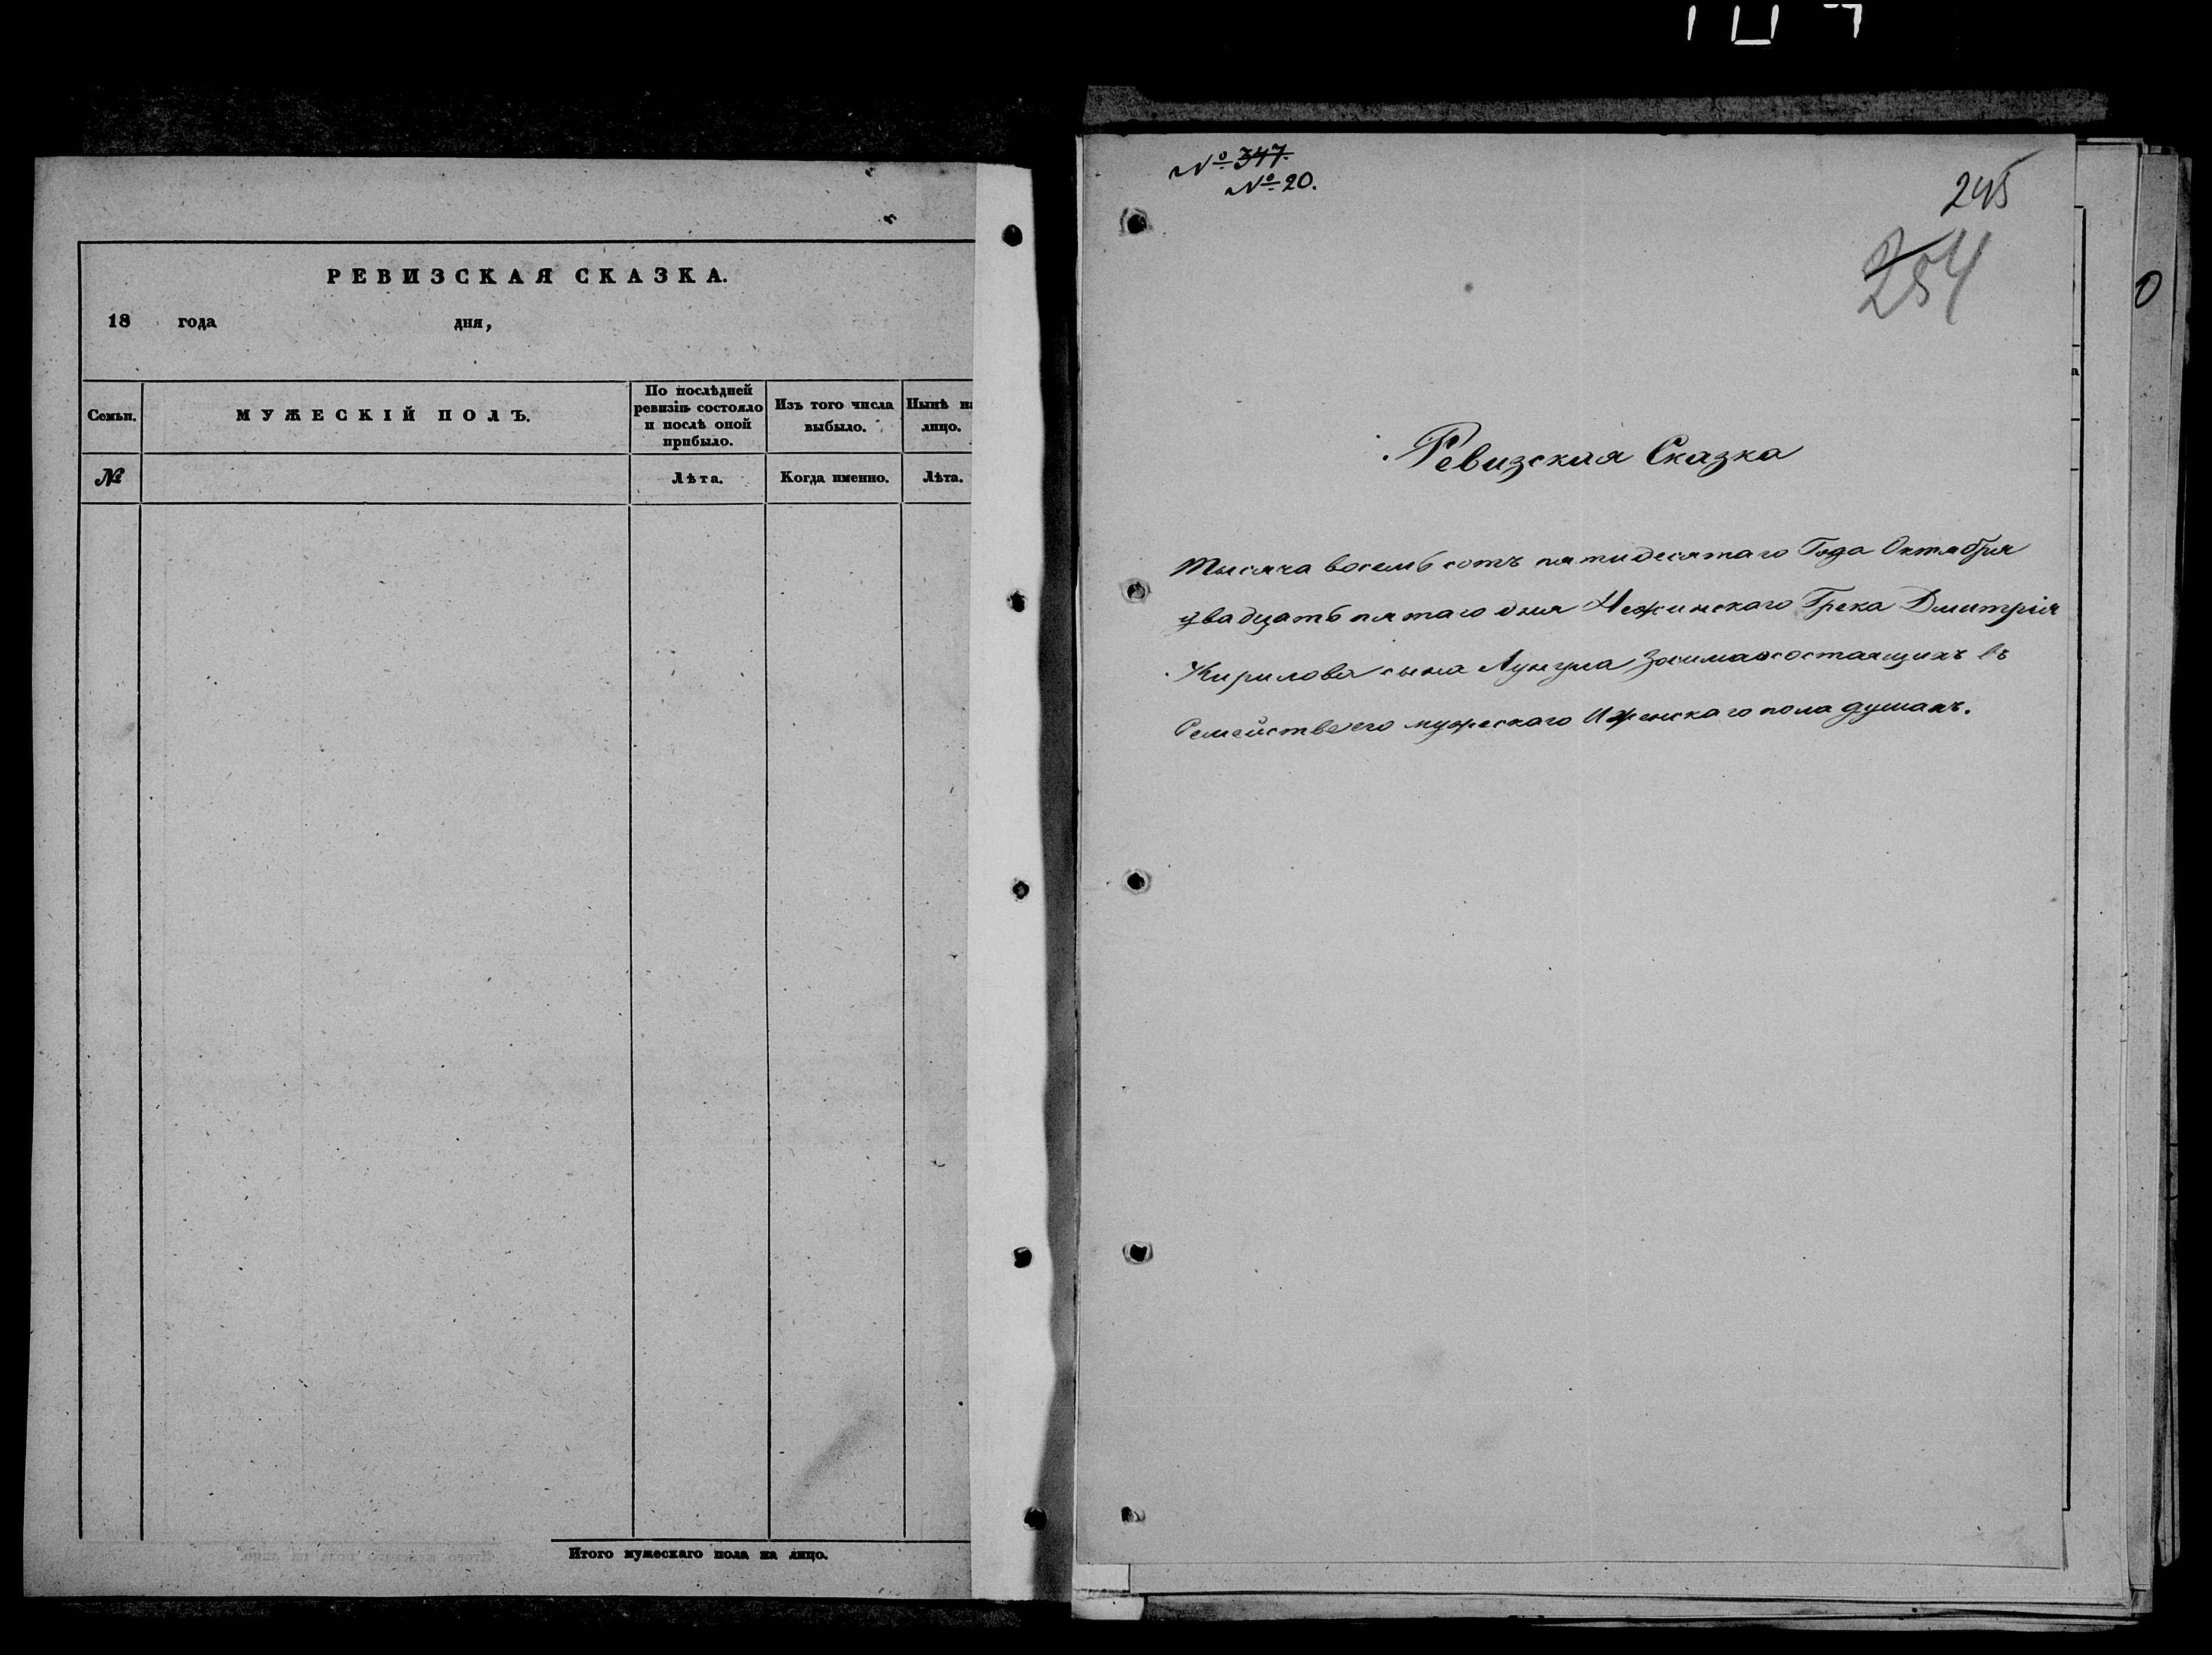 РЕВИЗСКАЯ СКАЗКА.
18 года дня,
Семьи.
МУЖЕСКІЙ ПОЛЪ.
По послѣдней
ревизіи состояло
и послѣ оной
прибыло.
Изъ того числа
выбыло.
Нынѣ на
лицо.
№
Лѣта.
Когда именно.
Лѣта.
Итого мужескаго пола на лицо.
№ 347.
№ 20.
245
254
Ревизская Сказка
Тысяча восемь сотъ пятидесятаго Года Октября
двадцать пятаго дня Нежинскаго Грека Дмитрія
Кирилова сына состаящихъ въ
Семействе его мужескаго И женскаго пола душахъ.
0